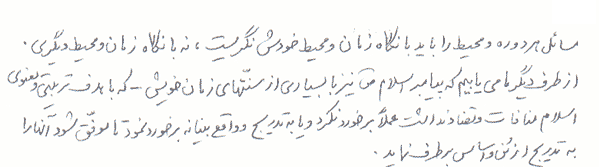 مسائل هر دوره و محیط را باید با نگاه زمان و محیط خودش نگریست، نه با نگاه زمان و محیط دیگری.
از طرف دیگر ما می یابیم که پیامبر اسلام ص نیز با بسیاری از سنّتهای زمان خویش – که با هدف تربیتی و معنوی
اسلام منافات و تضاد نداشت عملاً برخورد نکرد و یا به تدریج و واقع بینانه برخورد نمود تا موفّق شود آنها را
به تدریج از بُن و اساس برطرف نماید.